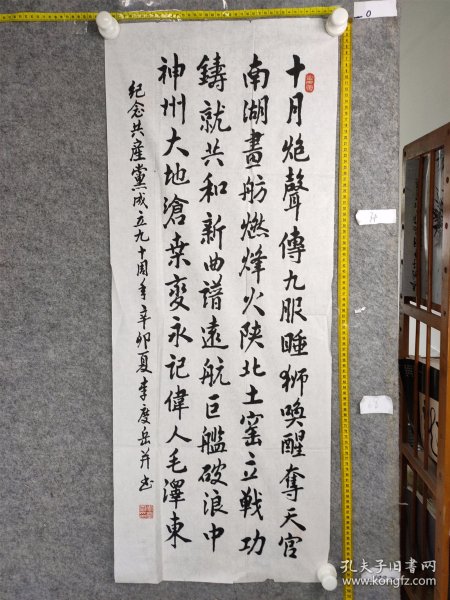 十月炮聲傳九服睡狮喚醒奪天官
南湖畫舫燃烽火陕北土窑立戰功
鑄就共和新曲譜遠航巨艦破浪中
神州大地滄桑变永记偉人毛澤東
纪念共產黨成立九十周年辛卯夏李度岳并书
孔夫子旧书网
www.kongfz.com